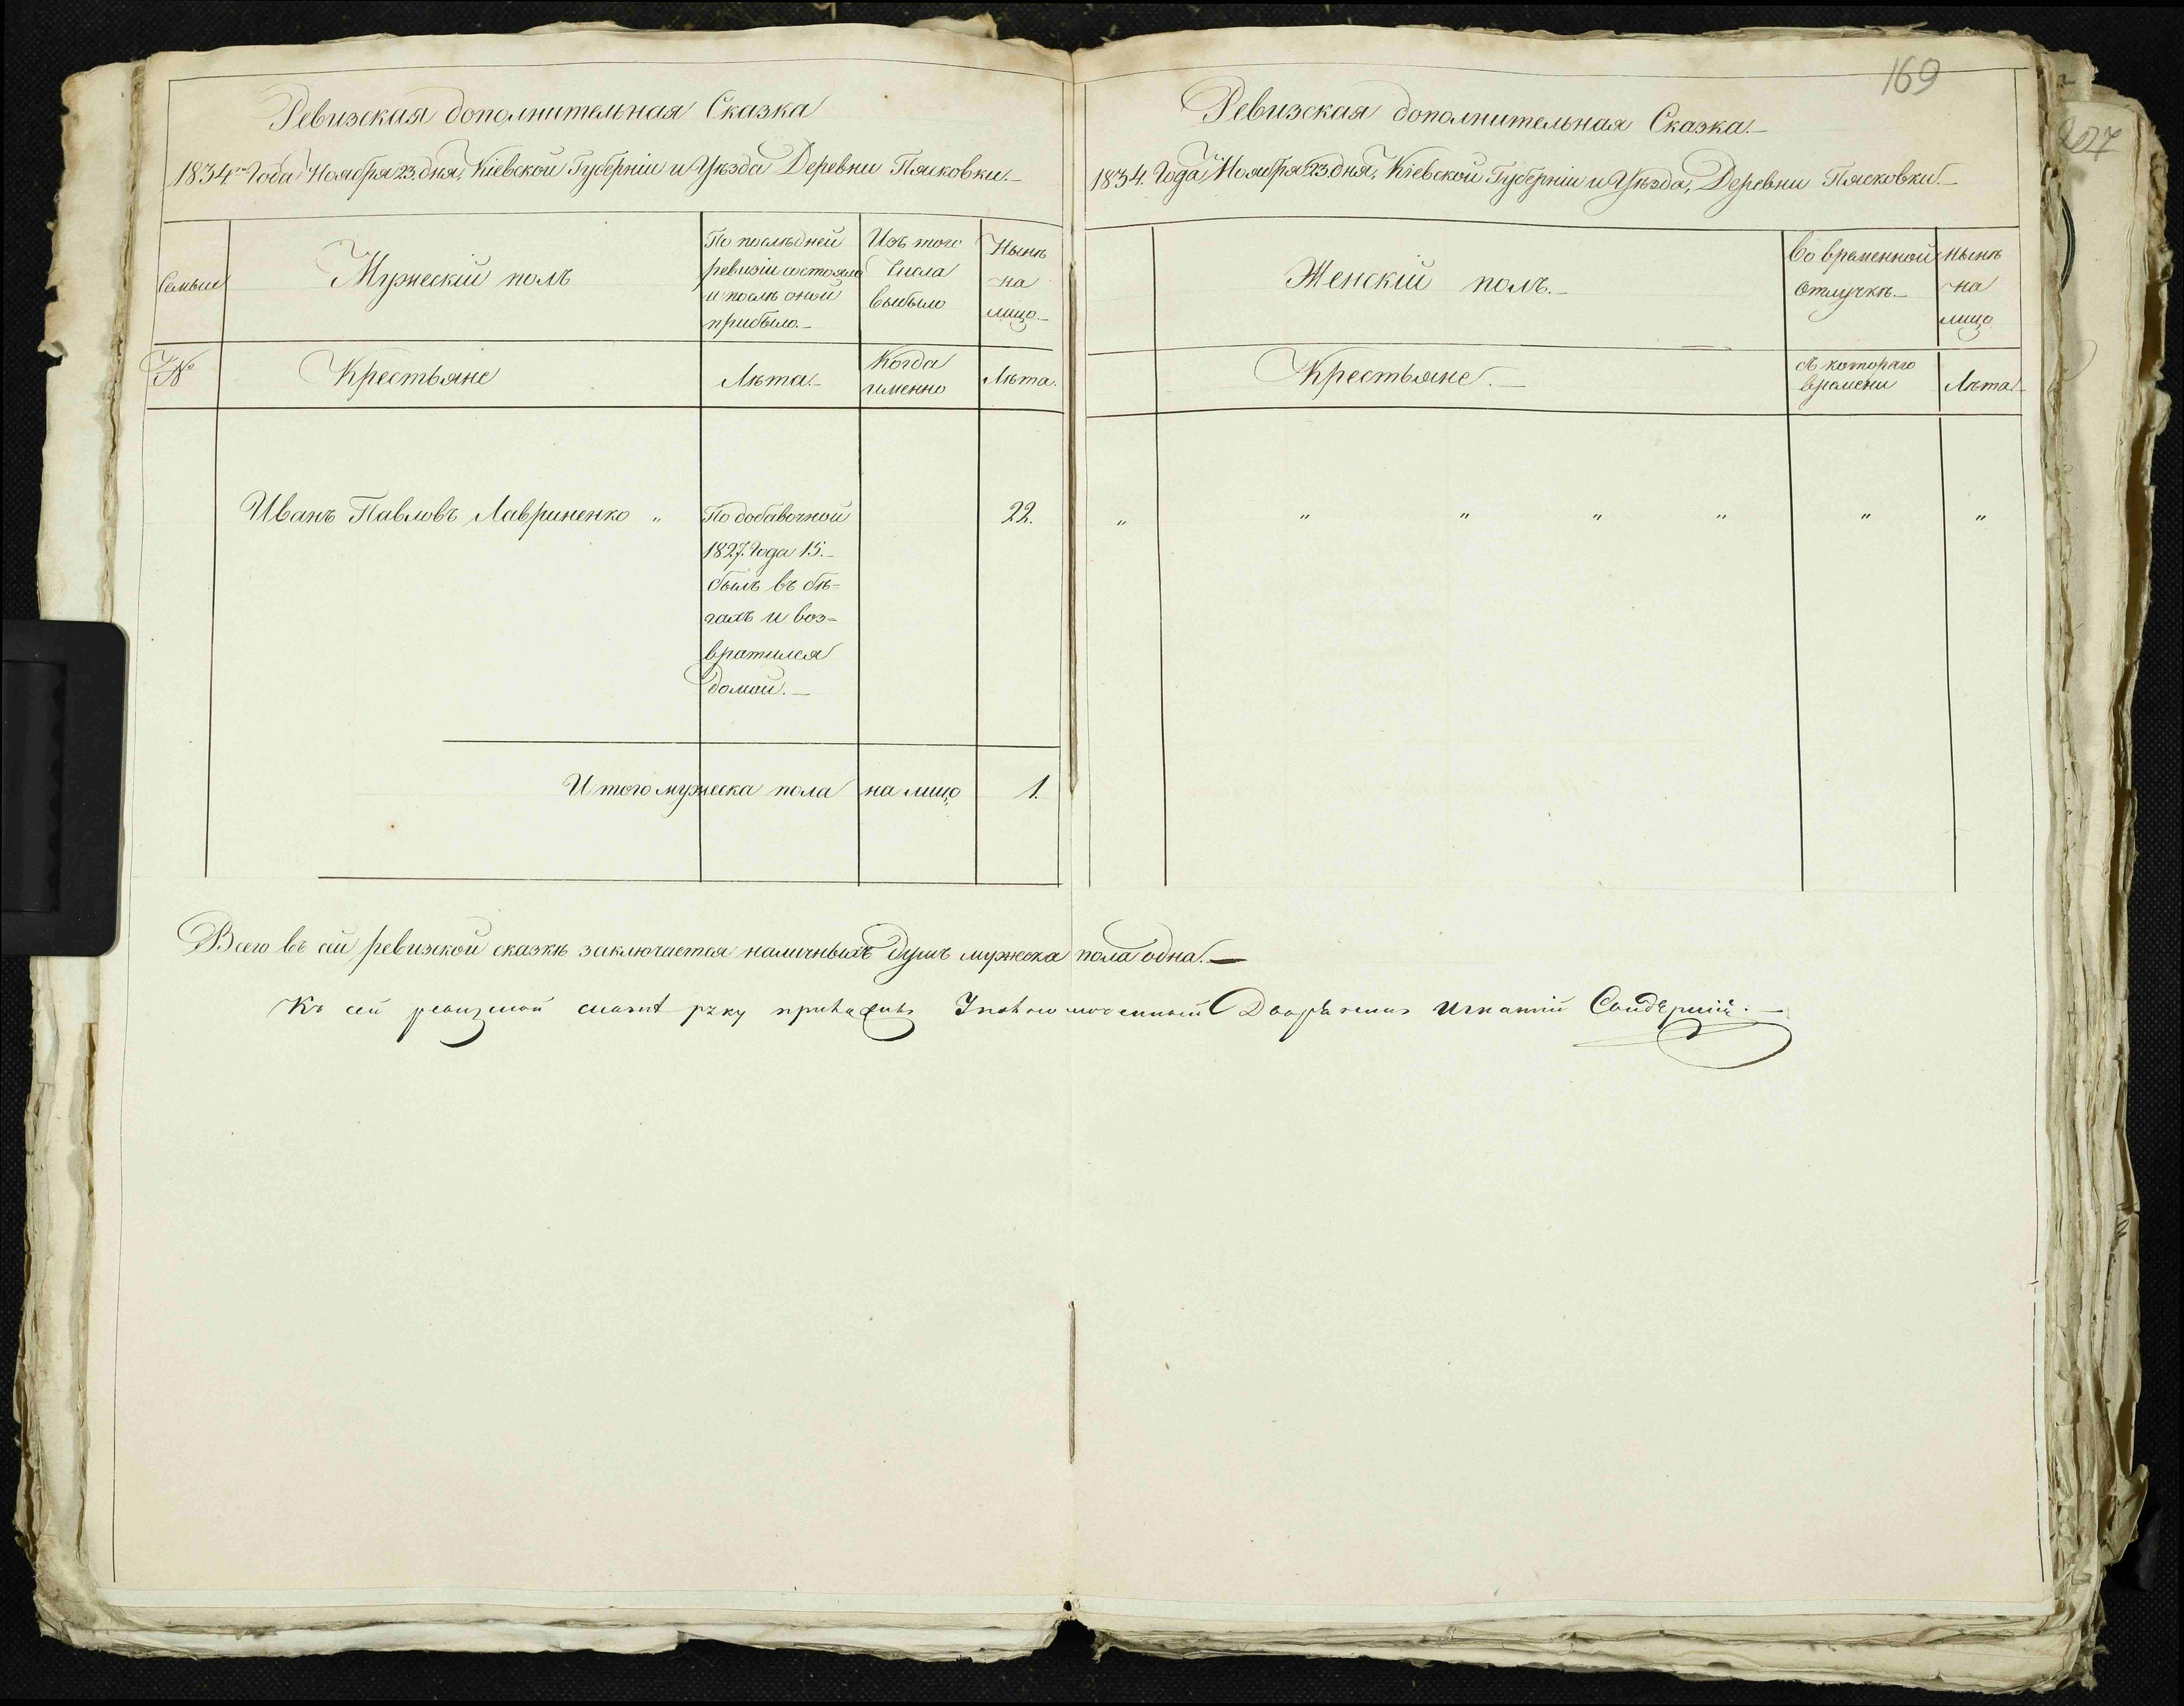 169
207
Ревизская дополнительная Сказка
1834го Года Ноября 23. дня, Кіевской Губерніи и Уѣзда Деревни Пясковки.
Семьи
Мужескій полъ
По послѣдней
ревизіи состояло
и послѣ оной
прибыло.
Изъ того
Числа
выбыло
Нынѣ
на
лицо.
№
Крестьяне
Лѣта.
Когда
именно
Лѣта.
Иванъ Павловъ Лавриненко "
По добавочной
1827. Года 15.
былъ въ бѣ-
гахъ и воз-
вратился
домой.
22.
Итого мужеска пола на лицо 1.
Ревизская дополнительная Сказка.
1834. Года, Ноября 23. дня, Кіевской Губерніи и Уѣзда, Деревни Пясковки.
Женскій полъ.
Во временной
отлучкѣ.
нынѣ
на
лицо
Крестьяне.
съ котораго
времени
Лѣта.
" " " " " " "
Всего въ сей ревизской сказкѣ заключается наличныхъ душъ мужеска пола одна.
Къ сей ревизкой сказкѣ руку приложилъ Дворянинъ Игнатій